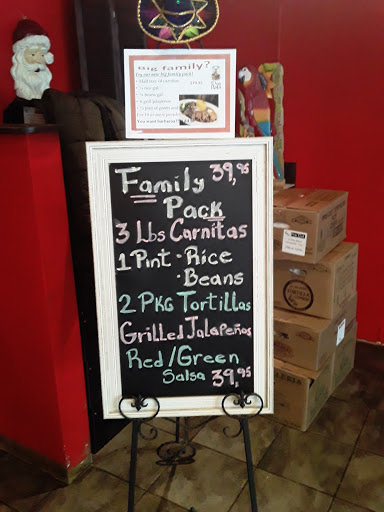 Big family?
Family 39,95
Pack
3 Lbs Carnitas
1 Pint • Rice
• Beans
2 PKG Tortillas
Grilled Jalapeños
Red/Green
Salsa 39,95
TORTILLA